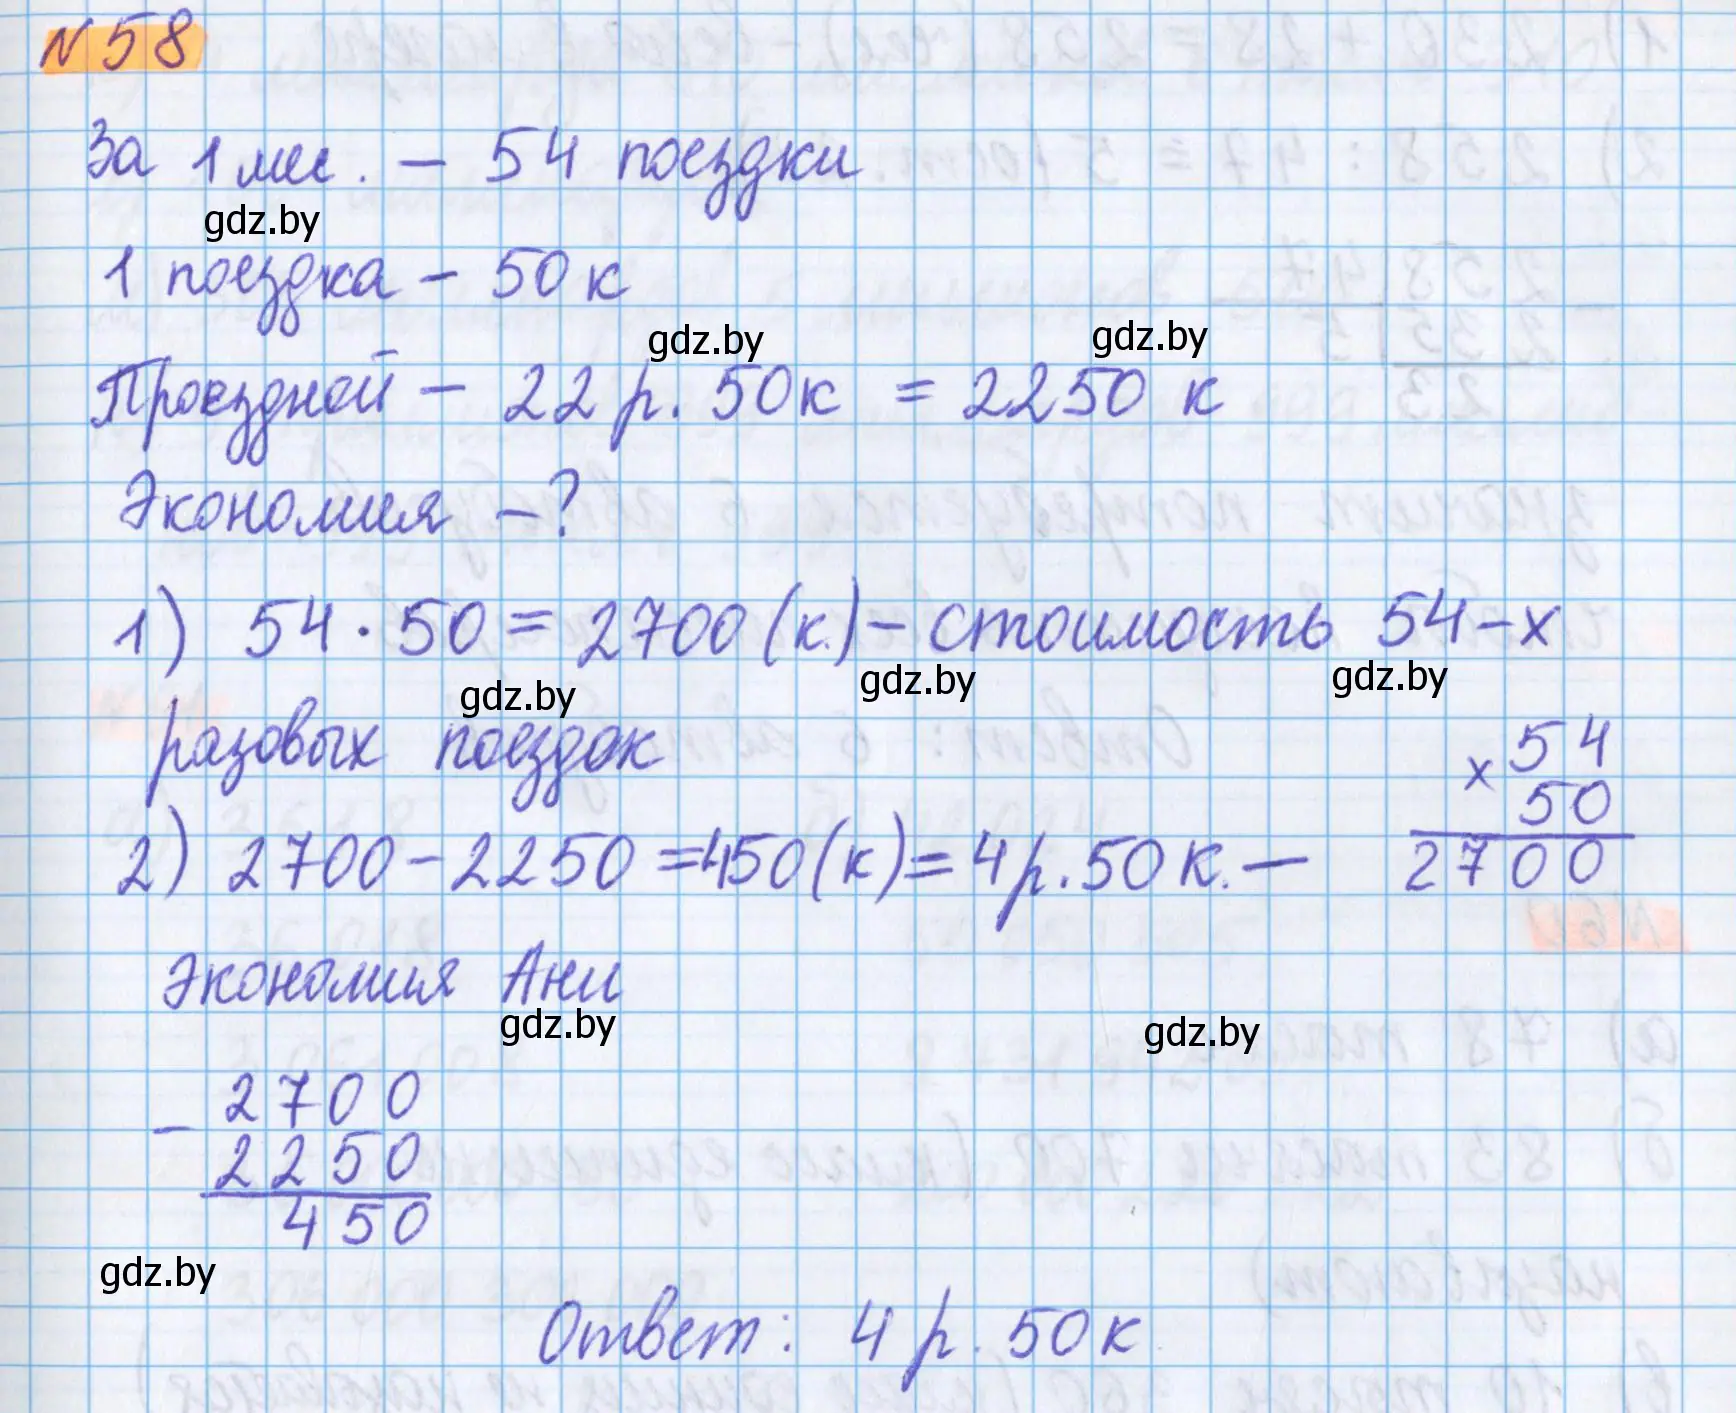 N 58
За 1 мес. – 54 поездки
gdz.by
1 поездка – 50 к
gdz.by gdz.by
Проездной – 22 р. 50 к = 2250 к
Экономия – ?
1) 54 · 50 = 2700 (к.) – стоимость 54-х
gdz.by gdz.by gdz.by
разовых поездок
× 54
50
2700
2) 2700 – 2250 = 450 (к) = 4 р. 50 к. –
экономия Ани
gdz.by gdz.by
– 2700
2250
450
gdz.by
Ответ: 4 р. 50 к